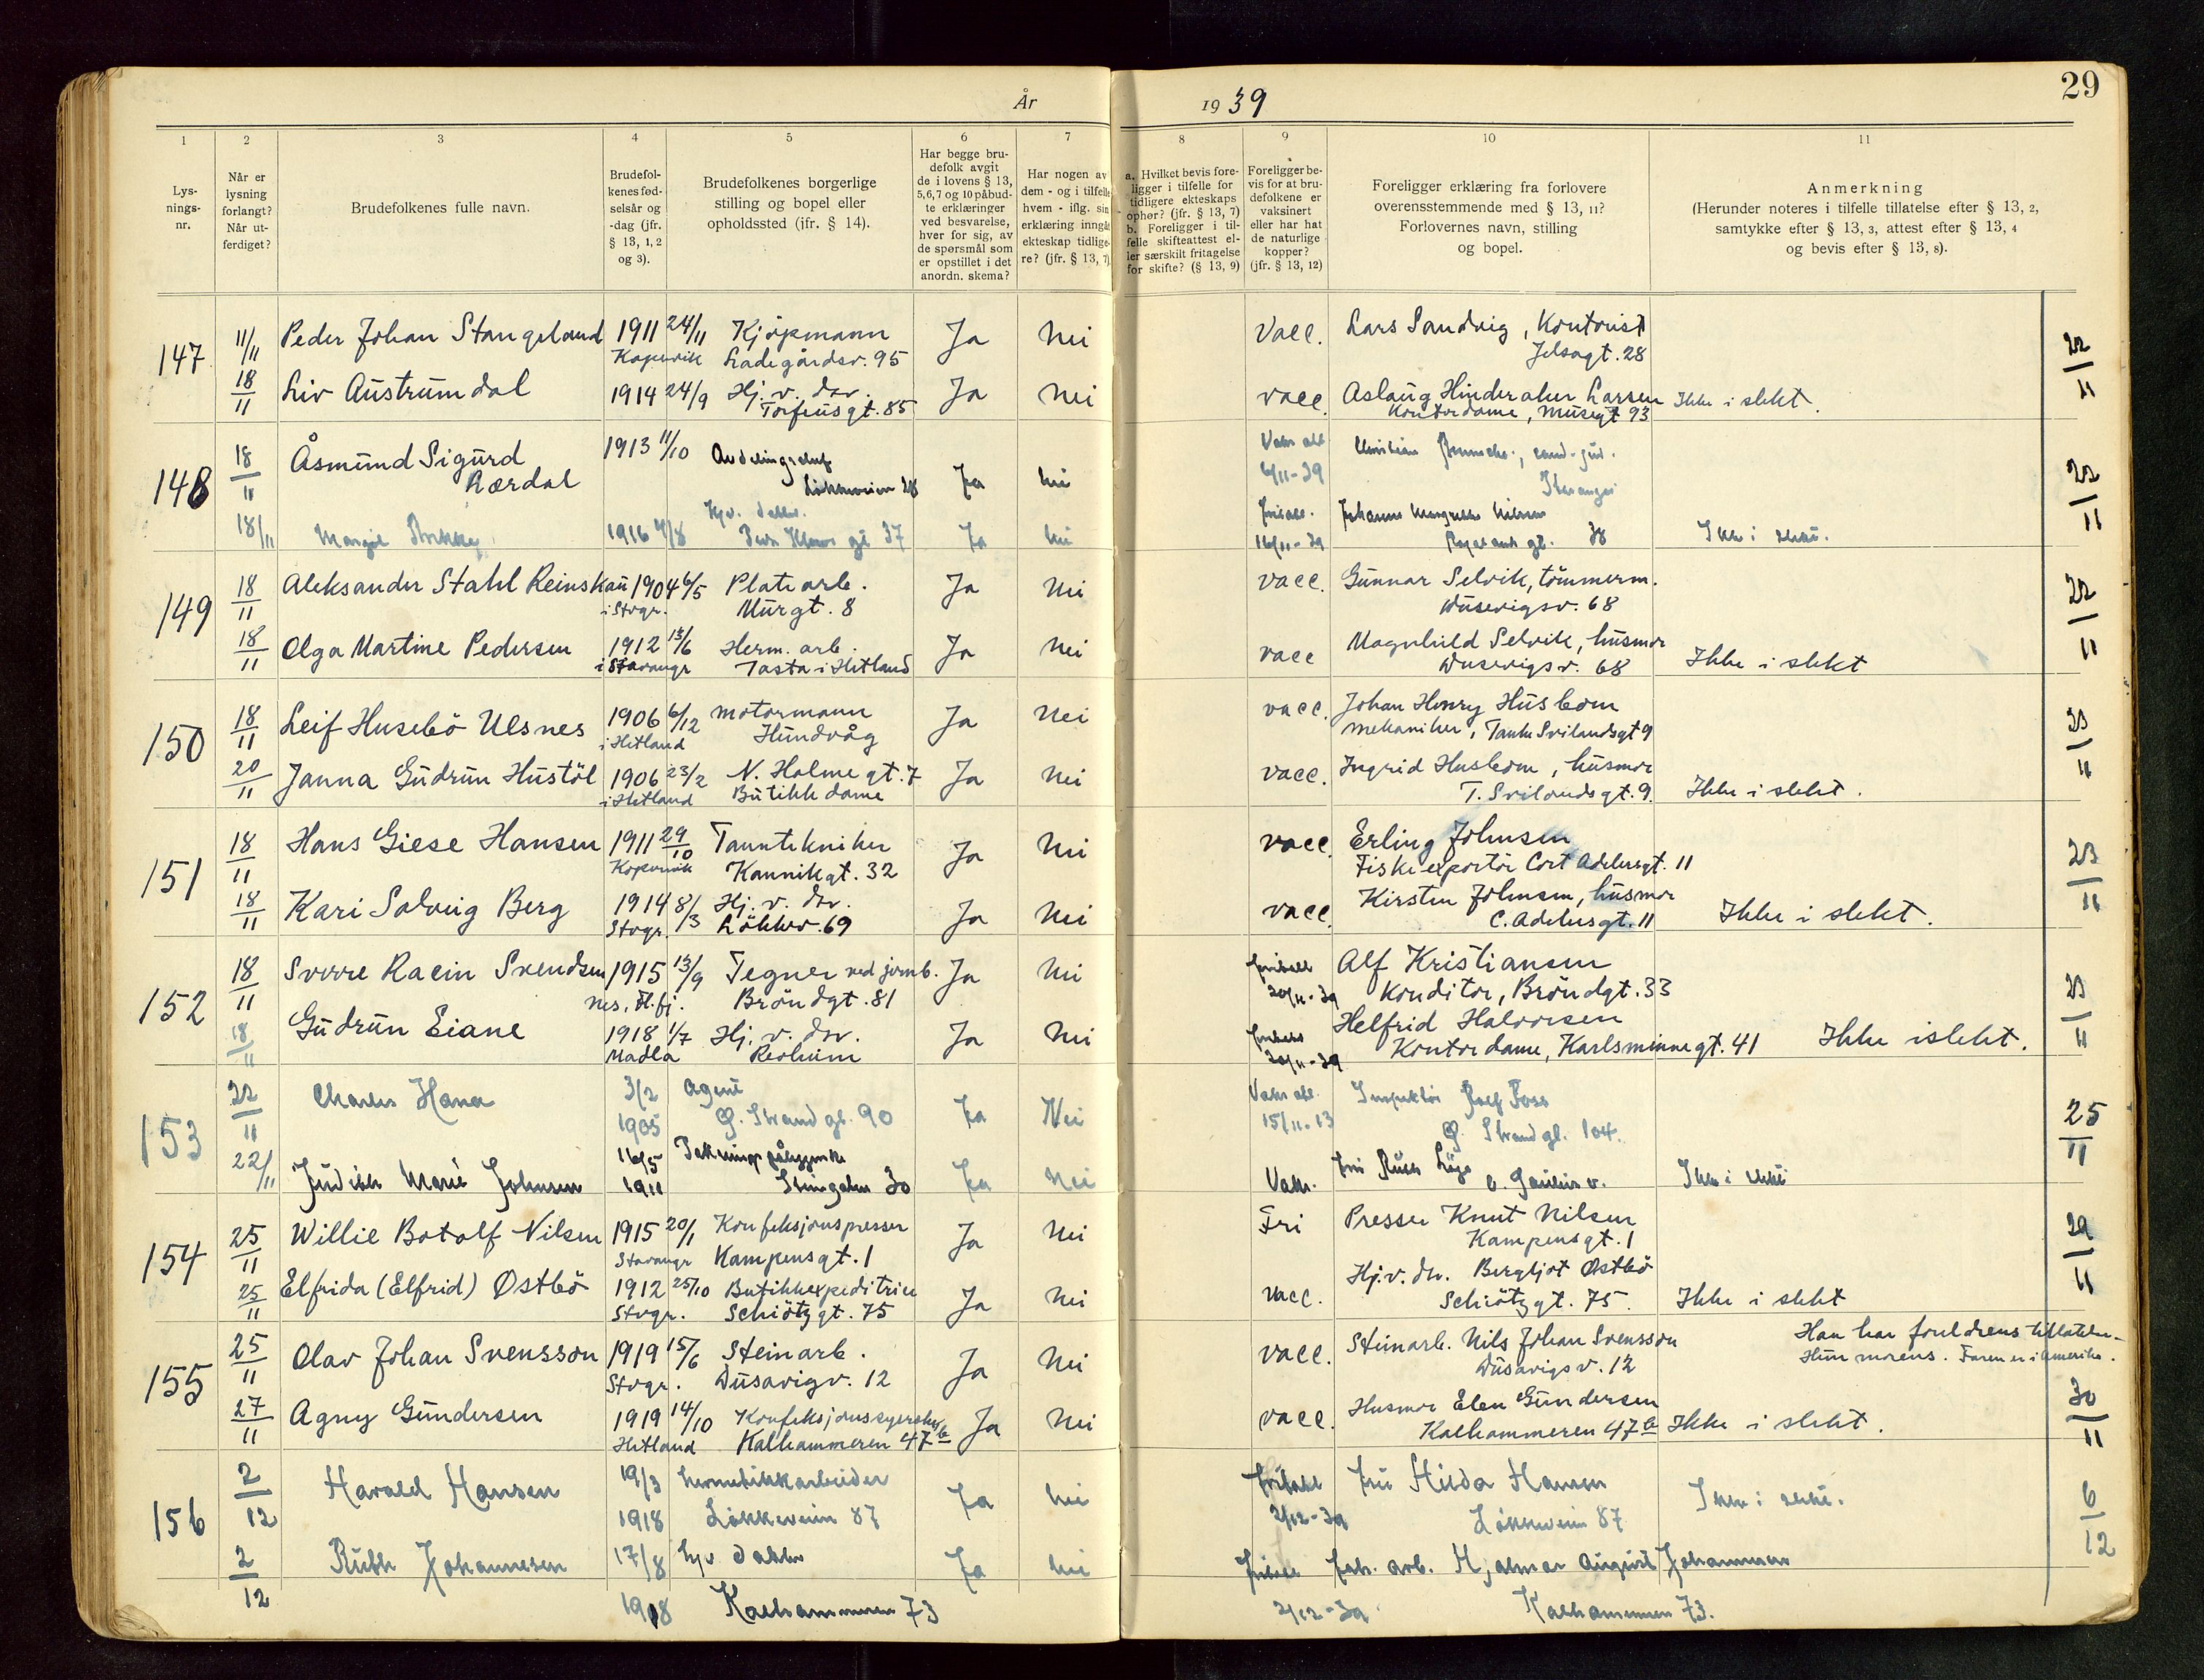 År 1939
29
1 2 3 4 5 6 7 8 9 10 11
Lysningsnr.
Når er lysning forlangt? Når utferdiget?
Brudefolkenes fulle navn.
Brudefolkenes fødselsår og -dag (jfr. § 13, 1, 2 og 3).
Brudefolkenes borgerlige stilling og bopel eller opholdssted (jfr. § 14).
Har begge brudefolk avgit de i lovens § 13, 5, 6, 7 og 10 påbudte erklæringer ved besvarelse, hver for sig, av de spørsmål som er opstillet i det anordn. skema?
Har nogen av dem - og i tilfelle hvem - iflg. sin erklæring inngåt ekteskap tidligere? (jfr. § 13, 7)
a. Hvilket bevis foreligger i tilfelle for tidligere ekteskaps ophør? (jfr. § 13, 7) b. Foreligger i tilfelle skifteattest eller særskilt fritagelse for skifte? (§ 13, 9)
Foreligger bevis for at brudefolkene er vaksinert eller har hat de naturlige kopper? (jfr. § 13, 12)
Foreligger erklæring fra forlovere overensstemmende med § 13, 11? Forlovernes navn, stilling og bopel.
Anmerkning (Herunder noteres i tilfelle tillatelse efter § 13, 2, samtykke efter § 13, 3, attest efter § 13, 4 og bevis efter § 13, 8).
147 11/11 Peder Johan Stangeland 1911 24/11 Kjöpmann Ja Nei Vacc. Lars Sandvig, Kontorist 22/11
Kopervik Ladegårdsv. 95 Jelsagt. 28
18/11 Liv Austrumdal 1914 24/9 Hj. v. dov. Ja Nei vacc. Aslaug Hinderaker Larsen Ikke i slekt.
Torfæusgt. 85 Kontordame, Musegt 93
148 18/11 Åsmund Sigurd 1913 11/10 Avdelingschef Ja Nei
Lærdal Løkkeveien 28 6/11-39 Stavanger 22/11
18/11 Margit 1916 4/8 Hj v. Ja Nei Johanne Margrethe Nilsen
gt 37 16/11-39 gt. 38 Ikke i slekt.
149 18/11 Aleksander Stahl Reinskau 1904 6/5 Platearb. Ja Nei vacc. Gunnar Selvik, tömmerm. 22/11
i Stvgr. Murgt. 8 Dusevigsv. 68
18/11 Olga Martine Pedersen 1912 13/6 Herm. arb. Ja Nei vacc Magnhild Selvik, husmor
i Stavangr Tasta i Hetland Dusevigsv. 68 Ikke i slekt
150 18/11 Leif Husebö Ulsnes 1906 6/12 motormann Ja Nei vacc. Johan Henry Husbom 23/11
i Hetland Hundvåg mekaniker, Tanke Svilandsgt 9
20/11 Janna Gudrun Hustöl 1906 23/2 N. Holmegt. 7 Ja Nei vacc. Ingrid Husbom, husmor
i Hetland Butikkdame T. Svilandsgt. 9. Ikke i slekt.
151 18/11 Hans Giese Hansen 1911 29/10 Tanntekniker Ja Nei vacc. Erling Johnsen 23/11
Kopervik Kannikgt. 32 Fiskeexportör Cort Adelersgt. 11
18/11 Kari Solveig Berg 1914 8/3 Hj. v. dov. Ja Nei vacc. Kirsten Johnsen, husmor
Stvgr. Lökkev. 69 C. Adelersgt. 11 Ikke i slekt.
152 18/11 Sverre Racin Svendsen 1915 13/9 Tegner ved jernb. Ja Nei Alf Kristiansen 23/11
Nes, Fl.fj. Bröndgt. 81 20/11-39 Konditor, Bröndgt. 33
18/11 Gudrun Eiane 1918 1/7 Hj. v. dov. Ja Nei Helfrid Halvorsen
Madla Revheim 20/11-39 Kontordame, Karlsminnegt. 41 Ikke i slekt.
153 22/11 Charles Hana 3/2 Agent Ja Nei Inspektör Foss
1905 Ø. Strandgt. 90 15/11-13 Ø. Strandgt. 104. 25/11
22/11 Judith Marie Johnsen 16/5 Ja Nei Fru
1911 Steingaten 30 Vaks. Ikke i slekt
154 25/11 Willie Botolf Nilsen 1915 20/1 Konfeksjonspresser Ja Nei Fri Presser Knut Nilsen 29/11
Stavangr Kampensgt. 1 Kampensgt. 1
25/11 Elfrida (Elfrid) Østbö 1912 25/10 Butikkexpeditrice Ja Nei vacc. Hj. v. dv. Bergljot Østbö
Stvgr. Schiötzgt. 75 Schiötzgt. 75. Ikke i slekt
155 25/11 Olav Johan Svensson 1919 15/6 Steinarb. Ja Nei vacc. Steinarb. Nils Johan Svensson Han har foreldrenes tillatelse.
Stvgr. Dusavigv. 12 Dusavigsv. 12 Hun morens. Faren er i Amerika.
27/11 Agny Gundersen 1919 14/10 Konfeksjonssyerske Ja Nei vacc. Husmor Elen Gundersen 30/11
Hetland Kalhammeren 47b Kalhammeren 47b Ikke i slekt.
156 2/12 Harald Hansen 19/3 hermetikkarbeider Ja Nei Frú Hilda Hansen Ikke i slekt. 6/12
1918 Lökkeveien 87 2/12-39 Lökkeveien 87
2/12 Ruth Johannesen 17/8 hj v Ja Nei arb. Hjalmar August Johannesen
1918 Kalhammeren 73 2/12-39 Kalhammeren 73.